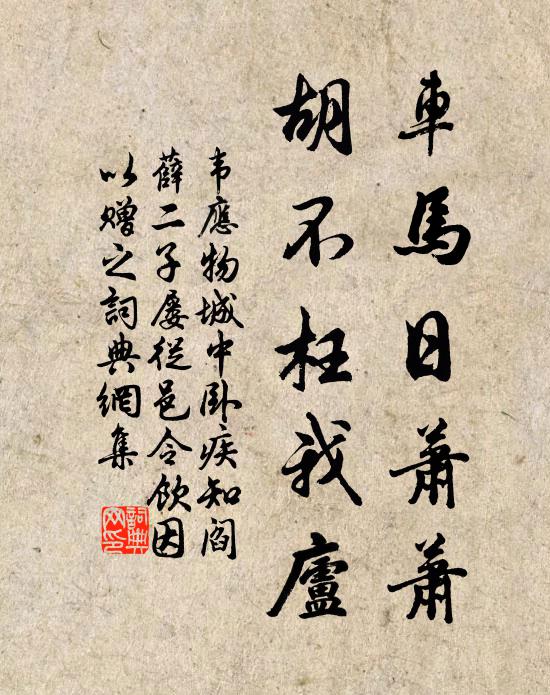 車馬日蕭蕭
胡不枉我廬
韦應物城中卧疾知閻
薛二子屡從邑令飲因
以赠之詞典網集
詞典
网印